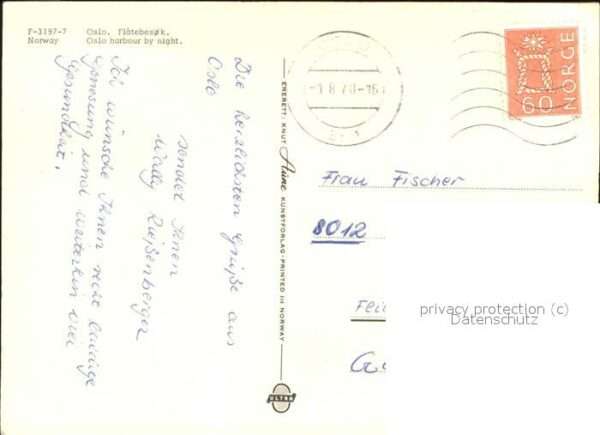 F-3197-7 Oslo. Flåtebesøk.
Norway Oslo harbour by night.
Die herzlichsten Grüße aus
Oslo
sendet Ihnen
Wally Reißenberger
Ich wünsche Ihnen recht baldige
Genesung und weiterhin viel
Gesundheit.
ENERETT: KNUT Aune KUNSTFORLAG - PRINTED IN NORWAY
ULTRA
-1.8.70-16
NORGE
60
Frau Fischer
8012
privacy protection (c)
Datenschutz